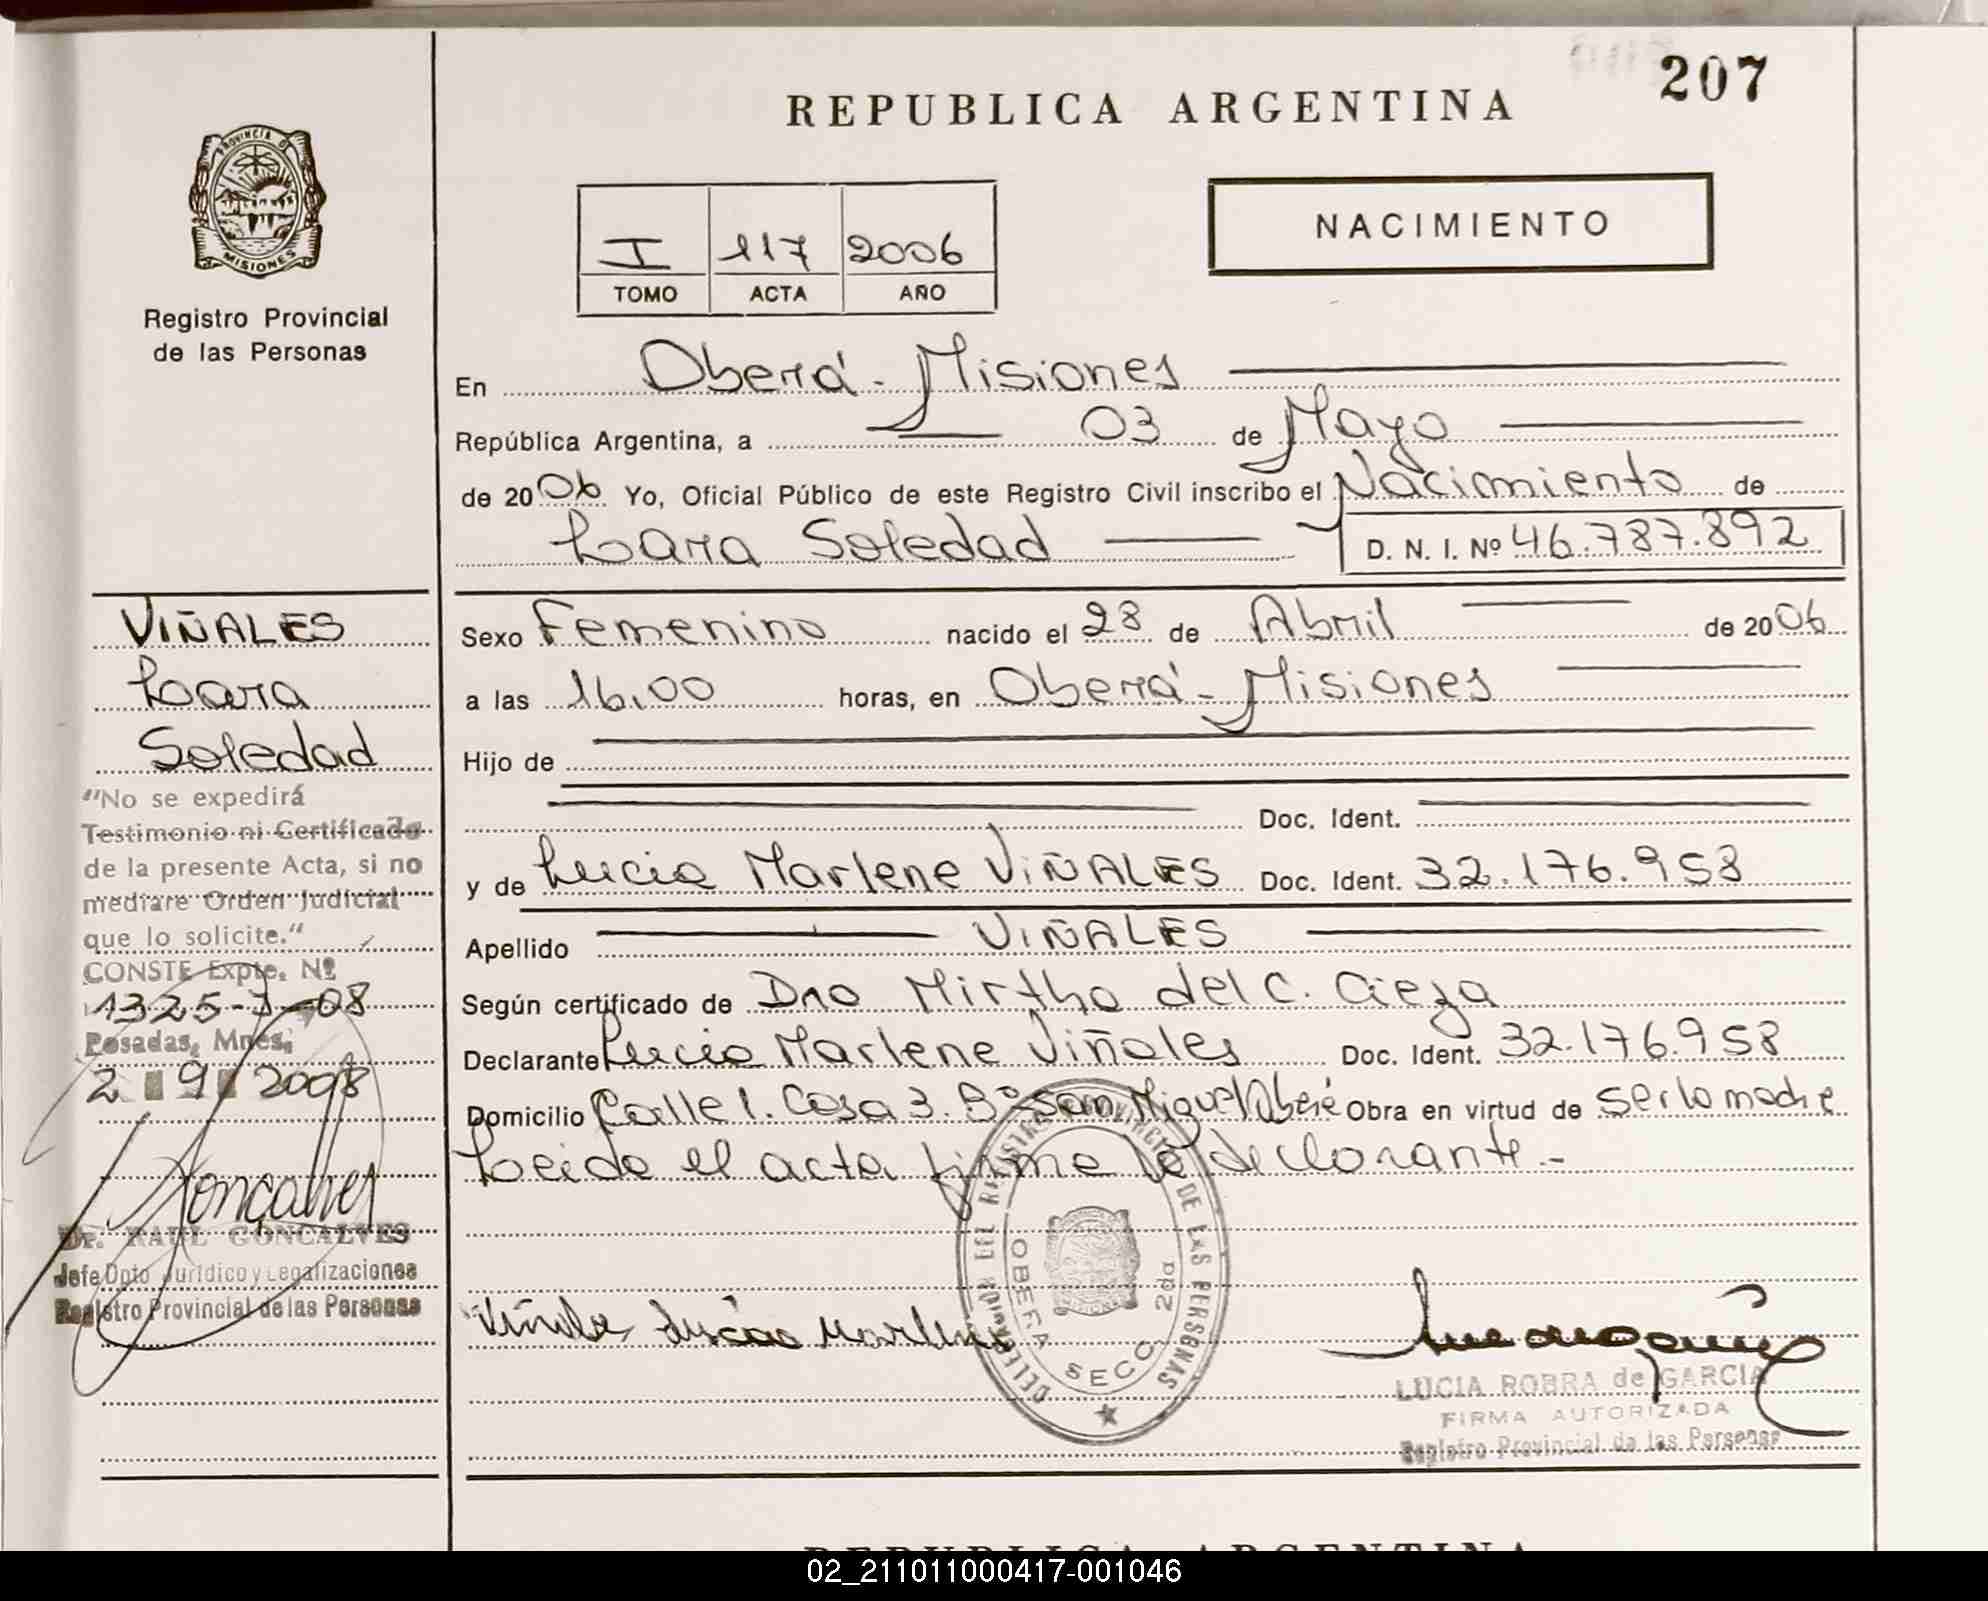 207
REPUBLICA ARGENTINA
PROVINCIA DE
MISIONES
Registro Provincial
de las Personas
NACIMIENTO
I 117 2006
TOMO ACTA AÑO
En Oberá - Misiones
República Argentina, a 03 de Mayo
de 2006 Yo, Oficial Público de este Registro Civil inscribo el Nacimiento de
Lara Soledad D. N. I. Nº 46.787.892
Sexo Femenino nacido el 28 de Abril de 2006
a las 16,00 horas, en Oberá - Misiones
Hijo de
Doc. Ident.
y de Lucia Marlene VIÑALES Doc. Ident. 32.176.958
Apellido VIÑALES
Según certificado de Dra Mirtha del C. Cieza
Declarante Lucia Marlene Viñales Doc. Ident. 32.176.958
Domicilio Calle 1. Casa 3. Bº San Miguel Oberá Obra en virtud de ser la madre
Leida el acta firma la declarante.-
VIÑALES
Lara
Soledad
"No se expedirá
Testimonio ni Certificado
de la presente Acta, si no
mediare Orden Judicial
que lo solicite."
CONSTE Expte. Nº
1325-J-08
Posadas, Mnes,
2 9 2008
Goncalves
Dr. RAUL GONCALVES
Jefe Dpto Jurídico y Legalizaciones
Registro Provincial de las Personas
Viñales Lucia Marlene
DELEGACION DEL REGISTRO PROVINCIAL DE LAS PERSONAS
OBERA SECC. 2da
LUCIA ROBRA de GARCIA
FIRMA AUTORIZADA
Registro Provincial de las Personas
REPUBLICA ARGENTINA
02_211011000417-001046